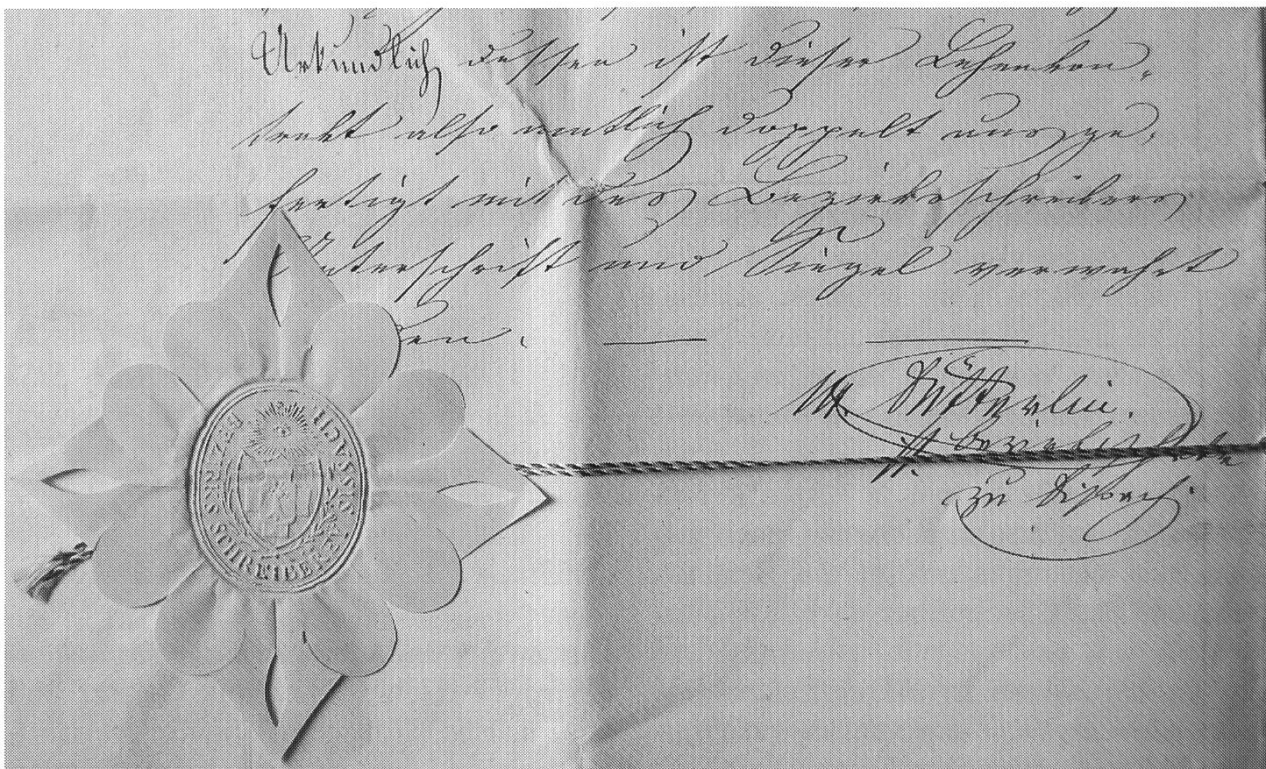 Urkundlich dessen ist dieser Lehenkon-
trakt also amtlich doppelt ausge-
fertigt mit des Bezirksschreibers
Unterschrift und Siegel verwahrt
en.
M. Sütterlin.
zu Sissach.
BEZIRKS SCHREIBEREI SISSACH